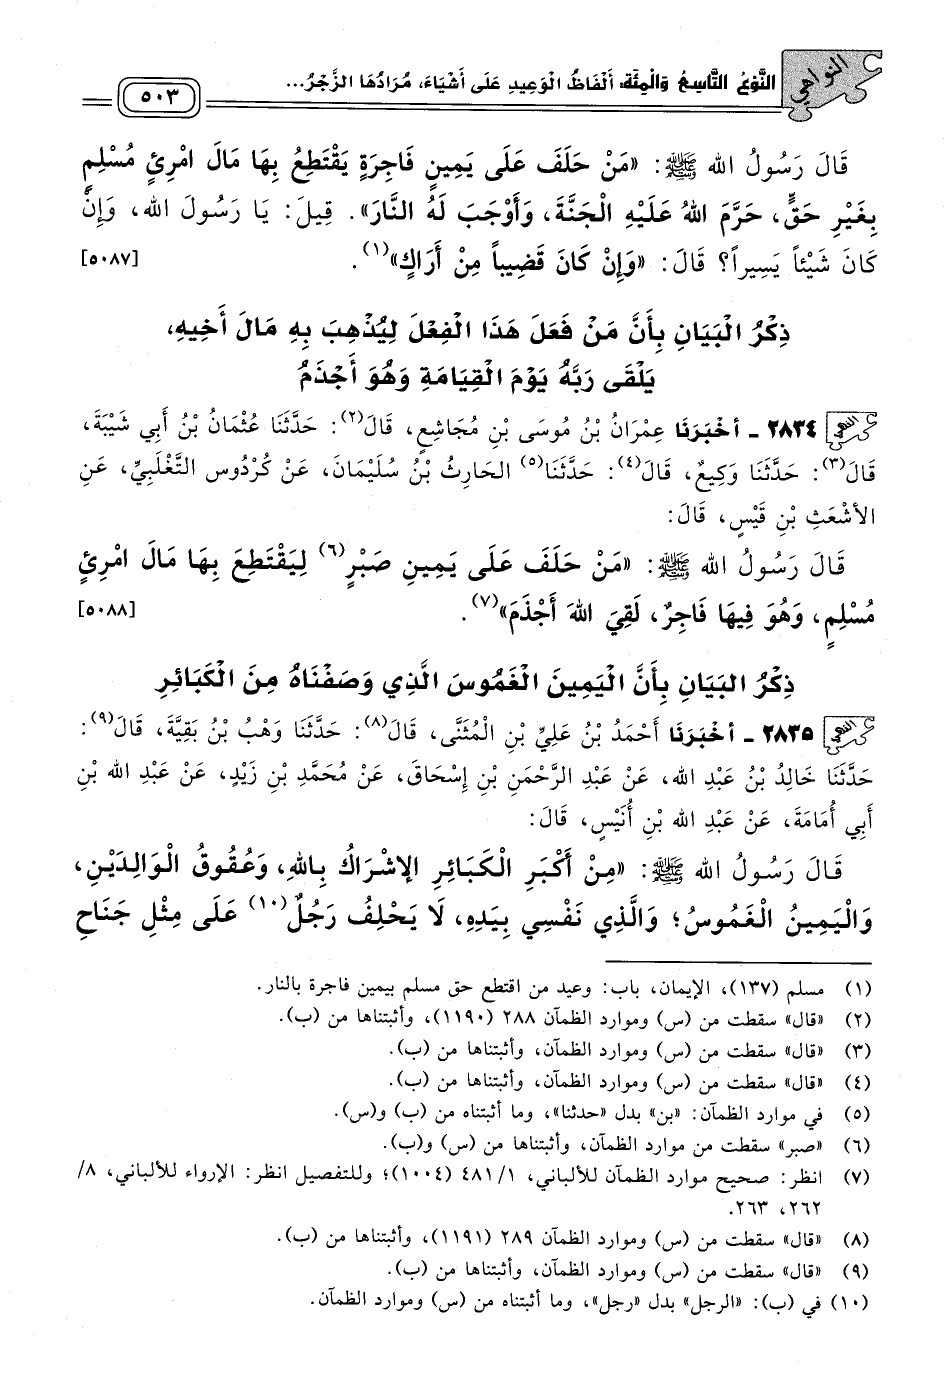 النواهي
النَّوْعُ التَّاسِعُ وَالْمِئَة: أَلْفَاظُ الْوَعِيدِ عَلَى أَشْيَاءَ، مُرَادُهَا الزَّجْرُ...
٥٠٣
قَالَ رَسُولُ الله ﷺ: «مَنْ حَلَفَ عَلَى يَمِينٍ فَاجِرَةٍ يَقْتَطِعُ بِهَا مَالَ امْرِئٍ مُسْلِمٍ
بِغَيْرِ حَقٍّ، حَرَّمَ اللهُ عَلَيْهِ الْجَنَّةَ، وَأَوْجَبَ لَهُ النَّارَ». قِيلَ: يَا رَسُولَ الله، وَإِنْ
كَانَ شَيْئاً يَسِيراً؟ قَالَ: «وَإِنْ كَانَ قَضِيباً مِنْ أَرَاكٍ»(١). [٥٠٨٧]
ذِكْرُ الْبَيَانِ بِأَنَّ مَنْ فَعَلَ هَذَا الْفِعْلَ لِيُذْهِبَ بِهِ مَالَ أَخِيهِ،
يَلْقَى رَبَّهُ يَوْمَ الْقِيَامَةِ وَهُوَ أَجْذَمُ
٢٨٣٤ - أَخْبَرَنَا عِمْرَانُ بْنُ مُوسَى بْنِ مُجَاشِعٍ، قَالَ(٢): حَدَّثَنَا عُثْمَانُ بْنُ أَبِي شَيْبَةَ،
قَالَ(٣): حَدَّثَنَا وَكِيعٌ، قَالَ(٤): حَدَّثَنَا(٥) الحَارِثُ بْنُ سُلَيْمَانَ، عَنْ كُرْدُوسٍ التَّغْلَبِيِّ، عَنِ
الأَشْعَثِ بْنِ قَيْسٍ، قَالَ:
قَالَ رَسُولُ الله ﷺ: «مَنْ حَلَفَ عَلَى يَمِينِ صَبْرٍ(٦) لِيَقْتَطِعَ بِهَا مَالَ امْرِئٍ
مُسْلِمٍ، وَهُوَ فِيهَا فَاجِرٌ، لَقِيَ اللهَ أَجْذَمَ»(٧). [٥٠٨٨]
ذِكْرُ البَيَانِ بِأَنَّ الْيَمِينَ الْغَمُوسَ الَّذِي وَصَفْنَاهُ مِنَ الْكَبَائِرِ
٢٨٣٥ - أَخْبَرَنَا أَحْمَدُ بْنُ عَلِيِّ بْنِ الْمُثَنَّى، قَالَ(٨): حَدَّثَنَا وَهْبُ بْنُ بَقِيَّةَ، قَالَ(٩):
حَدَّثَنَا خَالِدُ بْنُ عَبْدِ الله، عَنْ عَبْدِ الرَّحْمَنِ بْنِ إِسْحَاقَ، عَنْ مُحَمَّدِ بْنِ زَيْدٍ، عَنْ عَبْدِ الله بْنِ
أَبِي أُمَامَةَ، عَنْ عَبْدِ الله بْنِ أُنَيْسٍ، قَالَ:
قَالَ رَسُولُ الله ﷺ: «مِنْ أَكْبَرِ الْكَبَائِرِ الإِشْرَاكُ بِاللهِ، وَعُقُوقُ الْوَالِدَيْنِ،
وَالْيَمِينُ الْغَمُوسُ؛ وَالَّذِي نَفْسِي بِيَدِهِ، لَا يَحْلِفُ رَجُلٌ(١٠) عَلَى مِثْلِ جَنَاحِ
(١) مسلم (١٣٧)، الإيمان، باب: وعيد من اقتطع حق مسلم بيمين فاجرة بالنار.
(٢) «قال» سقطت من (س) وموارد الظمآن ٢٨٨ (١١٩٠)، وأثبتناها من (ب).
(٣) «قال» سقطت من (س) وموارد الظمآن، وأثبتناها من (ب).
(٤) «قال» سقطت من (س) وموارد الظمآن، وأثبتناها من (ب).
(٥) في موارد الظمآن: «بن» بدل «حدثنا»، وما أثبتناه من (ب) و(س).
(٦) «صبر» سقطت من موارد الظمآن، وأثبتناها من (س) و(ب).
(٧) انظر: صحيح موارد الظمآن للألباني، ١/ ٤٨١ (١٠٠٤)؛ وللتفصيل انظر: الإرواء للألباني، ٨/
٢٦٢، ٢٦٣.
(٨) «قال» سقطت من (س) وموارد الظمآن ٢٨٩ (١١٩١)، وأثبتناها من (ب).
(٩) «قال» سقطت من (س) وموارد الظمآن، وأثبتناها من (ب).
(١٠) في (ب): «الرجل» بدل «رجل»، وما أثبتناه من (س) وموارد الظمآن.